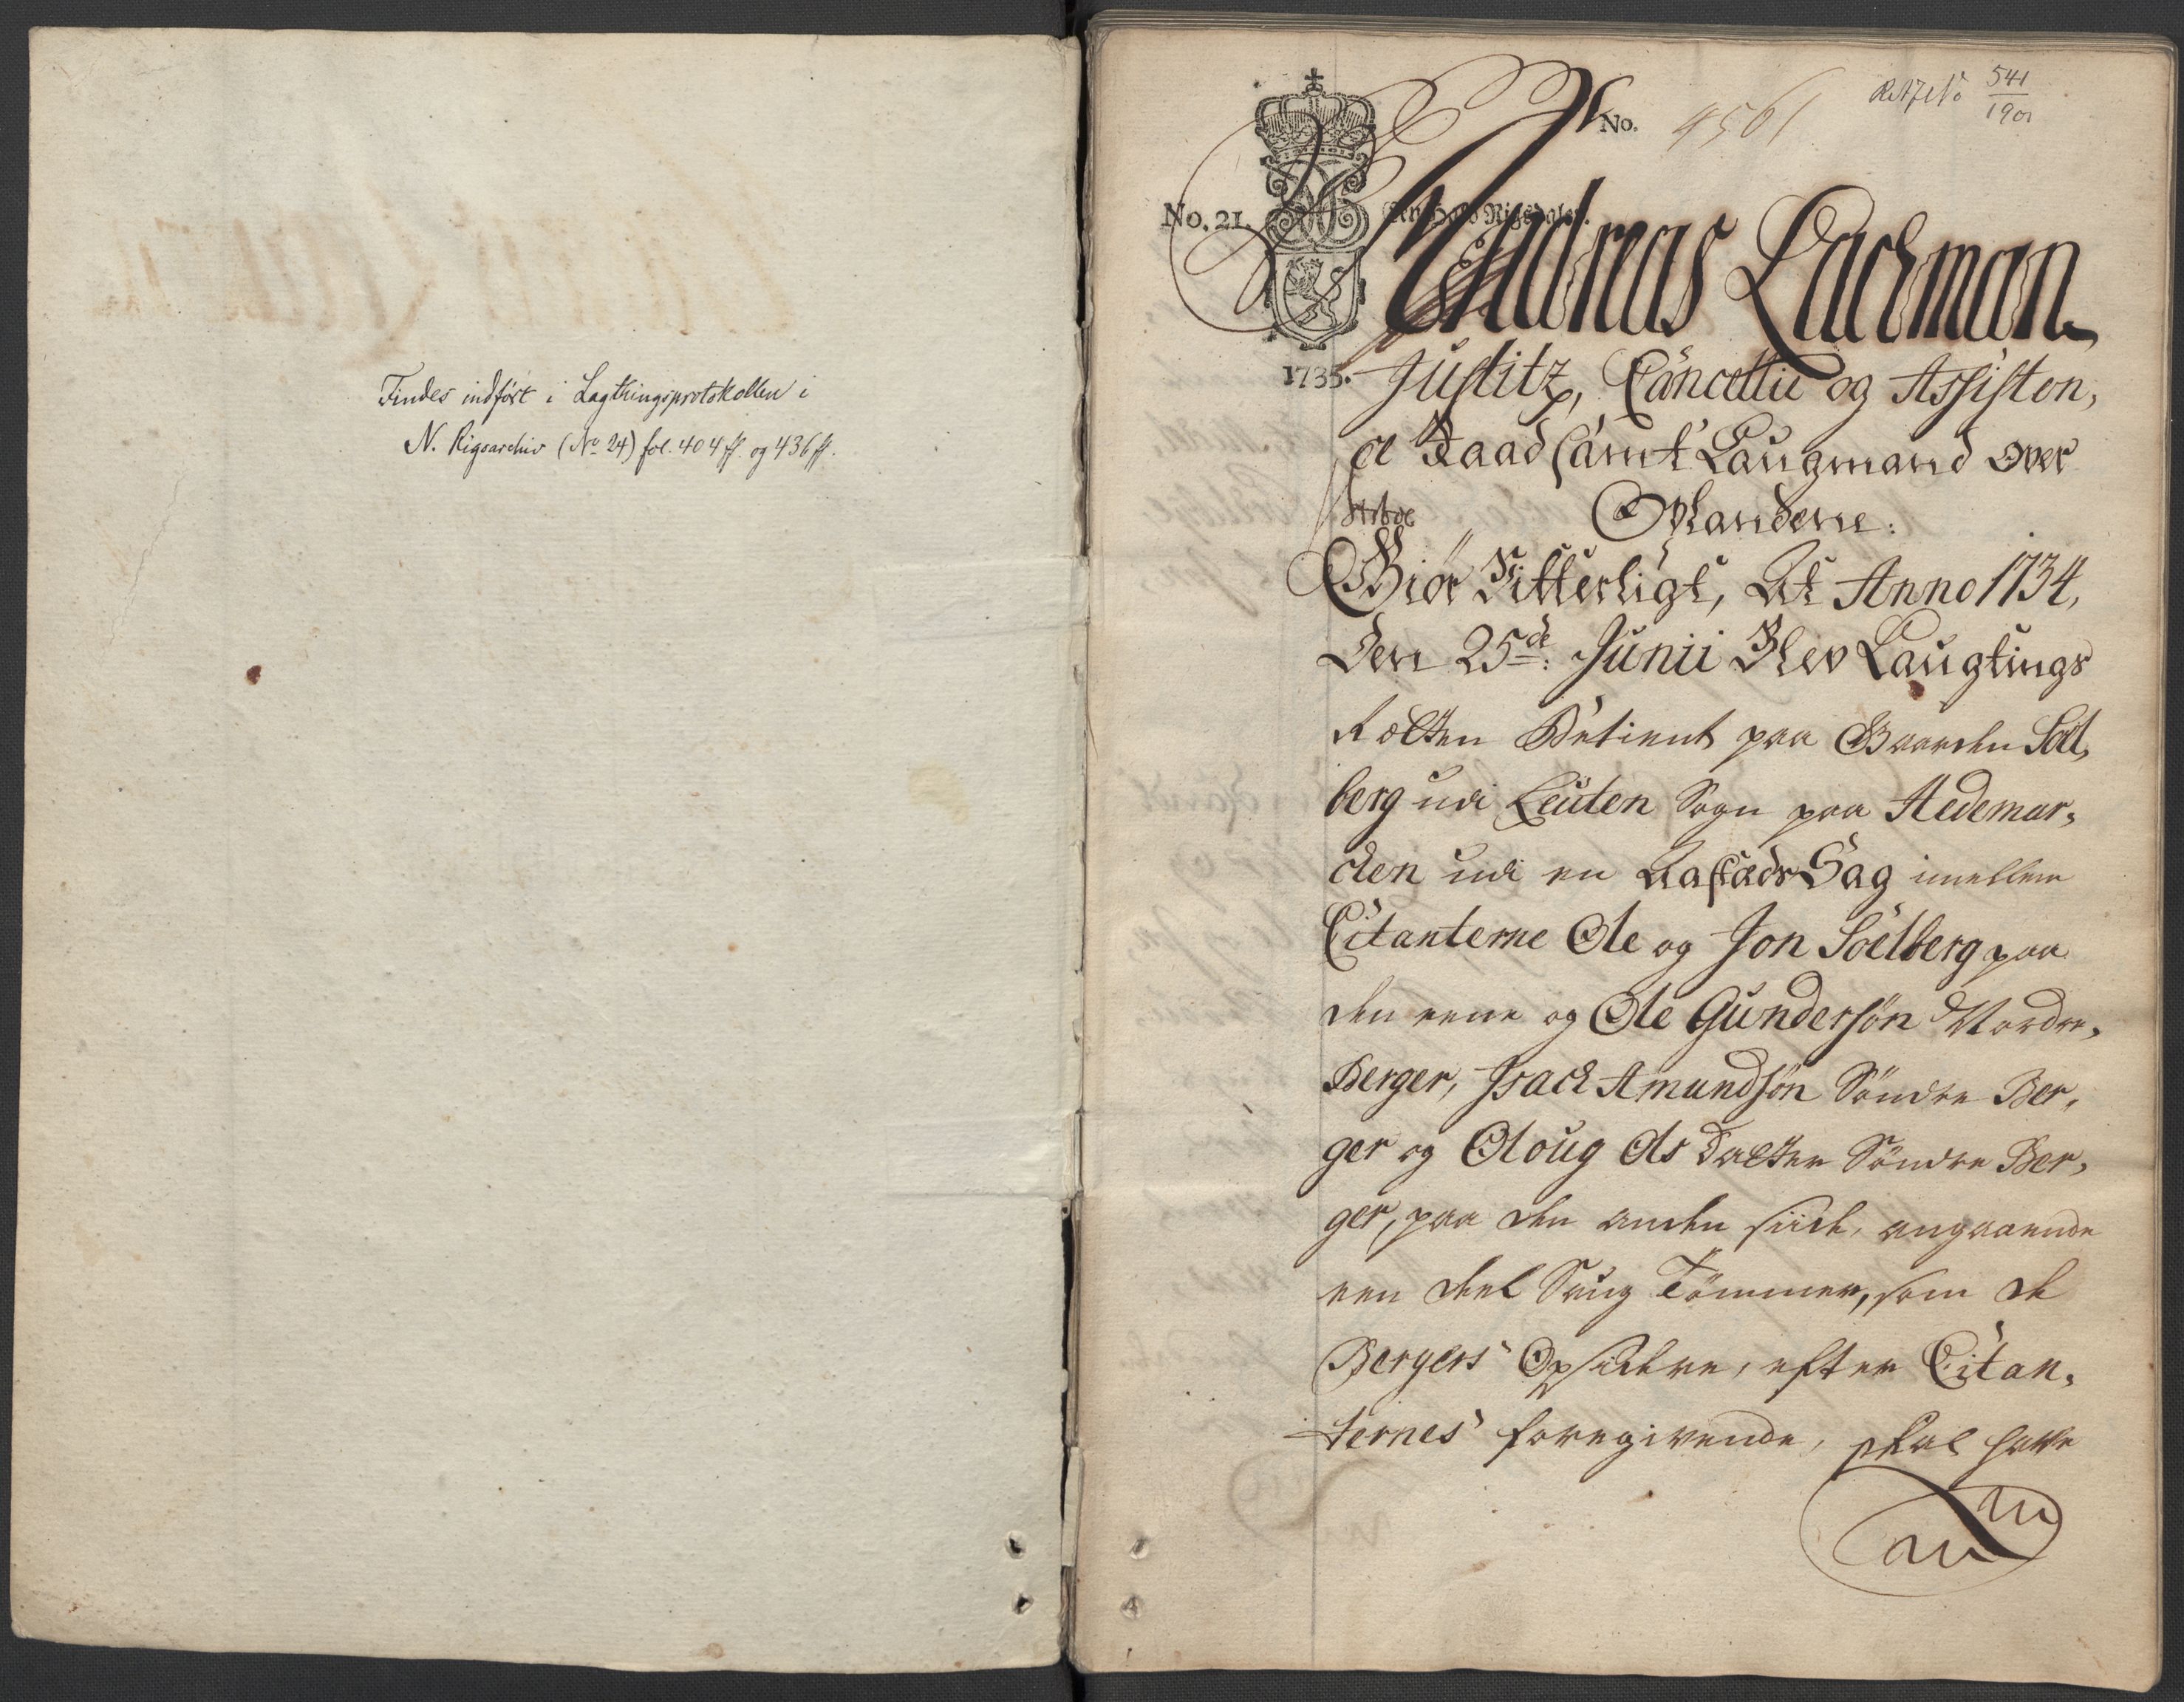 Findes indført i Lagthingsprotokollen i
N. Rigsarchiv (No 24) fol. 404 ff. og 436 ff.
541
1901
No. 4561
No. 21.
1735.
Andreas Lachman
Justitz, Cancellie og Assisten,
ce Raad samt Laugmand over
Oplandene:
Giør Vitterligt, At Anno 1734,
Den 25de: Junii Blev Laugtings
Rætten Betient paa Gaarden Soel,
berg udi Leuten Sogn paa Hedemar,
cken udi en Aastæds Sag imellem
Citanterne Ole og Jon Soelberg paa
den eene og Ole Gundersøn Nordre,
Berger, Isack Amundsøn Søndre Ber,
ger og Oloug Ols Datter Søndre Ber,
ger, paa den anden siide, angaaende
een deel Saug Tømmer, som de
Bergers Opsiddere, efter Citan,
ternes foregivende, skal have